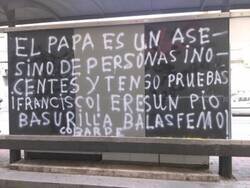 EL PAPA ES UN ASE-
SINO DE PERSONAS INO-
CENTES Y TENGO PRUEBAS
¡FRANCISCO! ERES UN PIO
BASURILLA BALASFEMO!
COBARDE